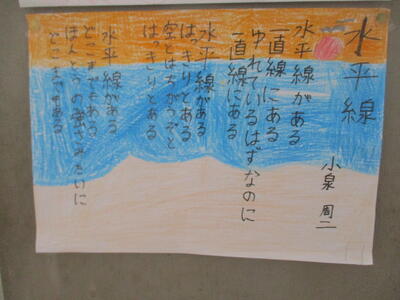 水平線
小泉周二
水平線がある
一直線にある
ゆれているはずなのに
一直線にある
水平線がある
はっきりとある
空とはちがうぞと
はっきりとある
水平線がある
どこまでもある
ほんとうの強さみたいに
どこまでもある